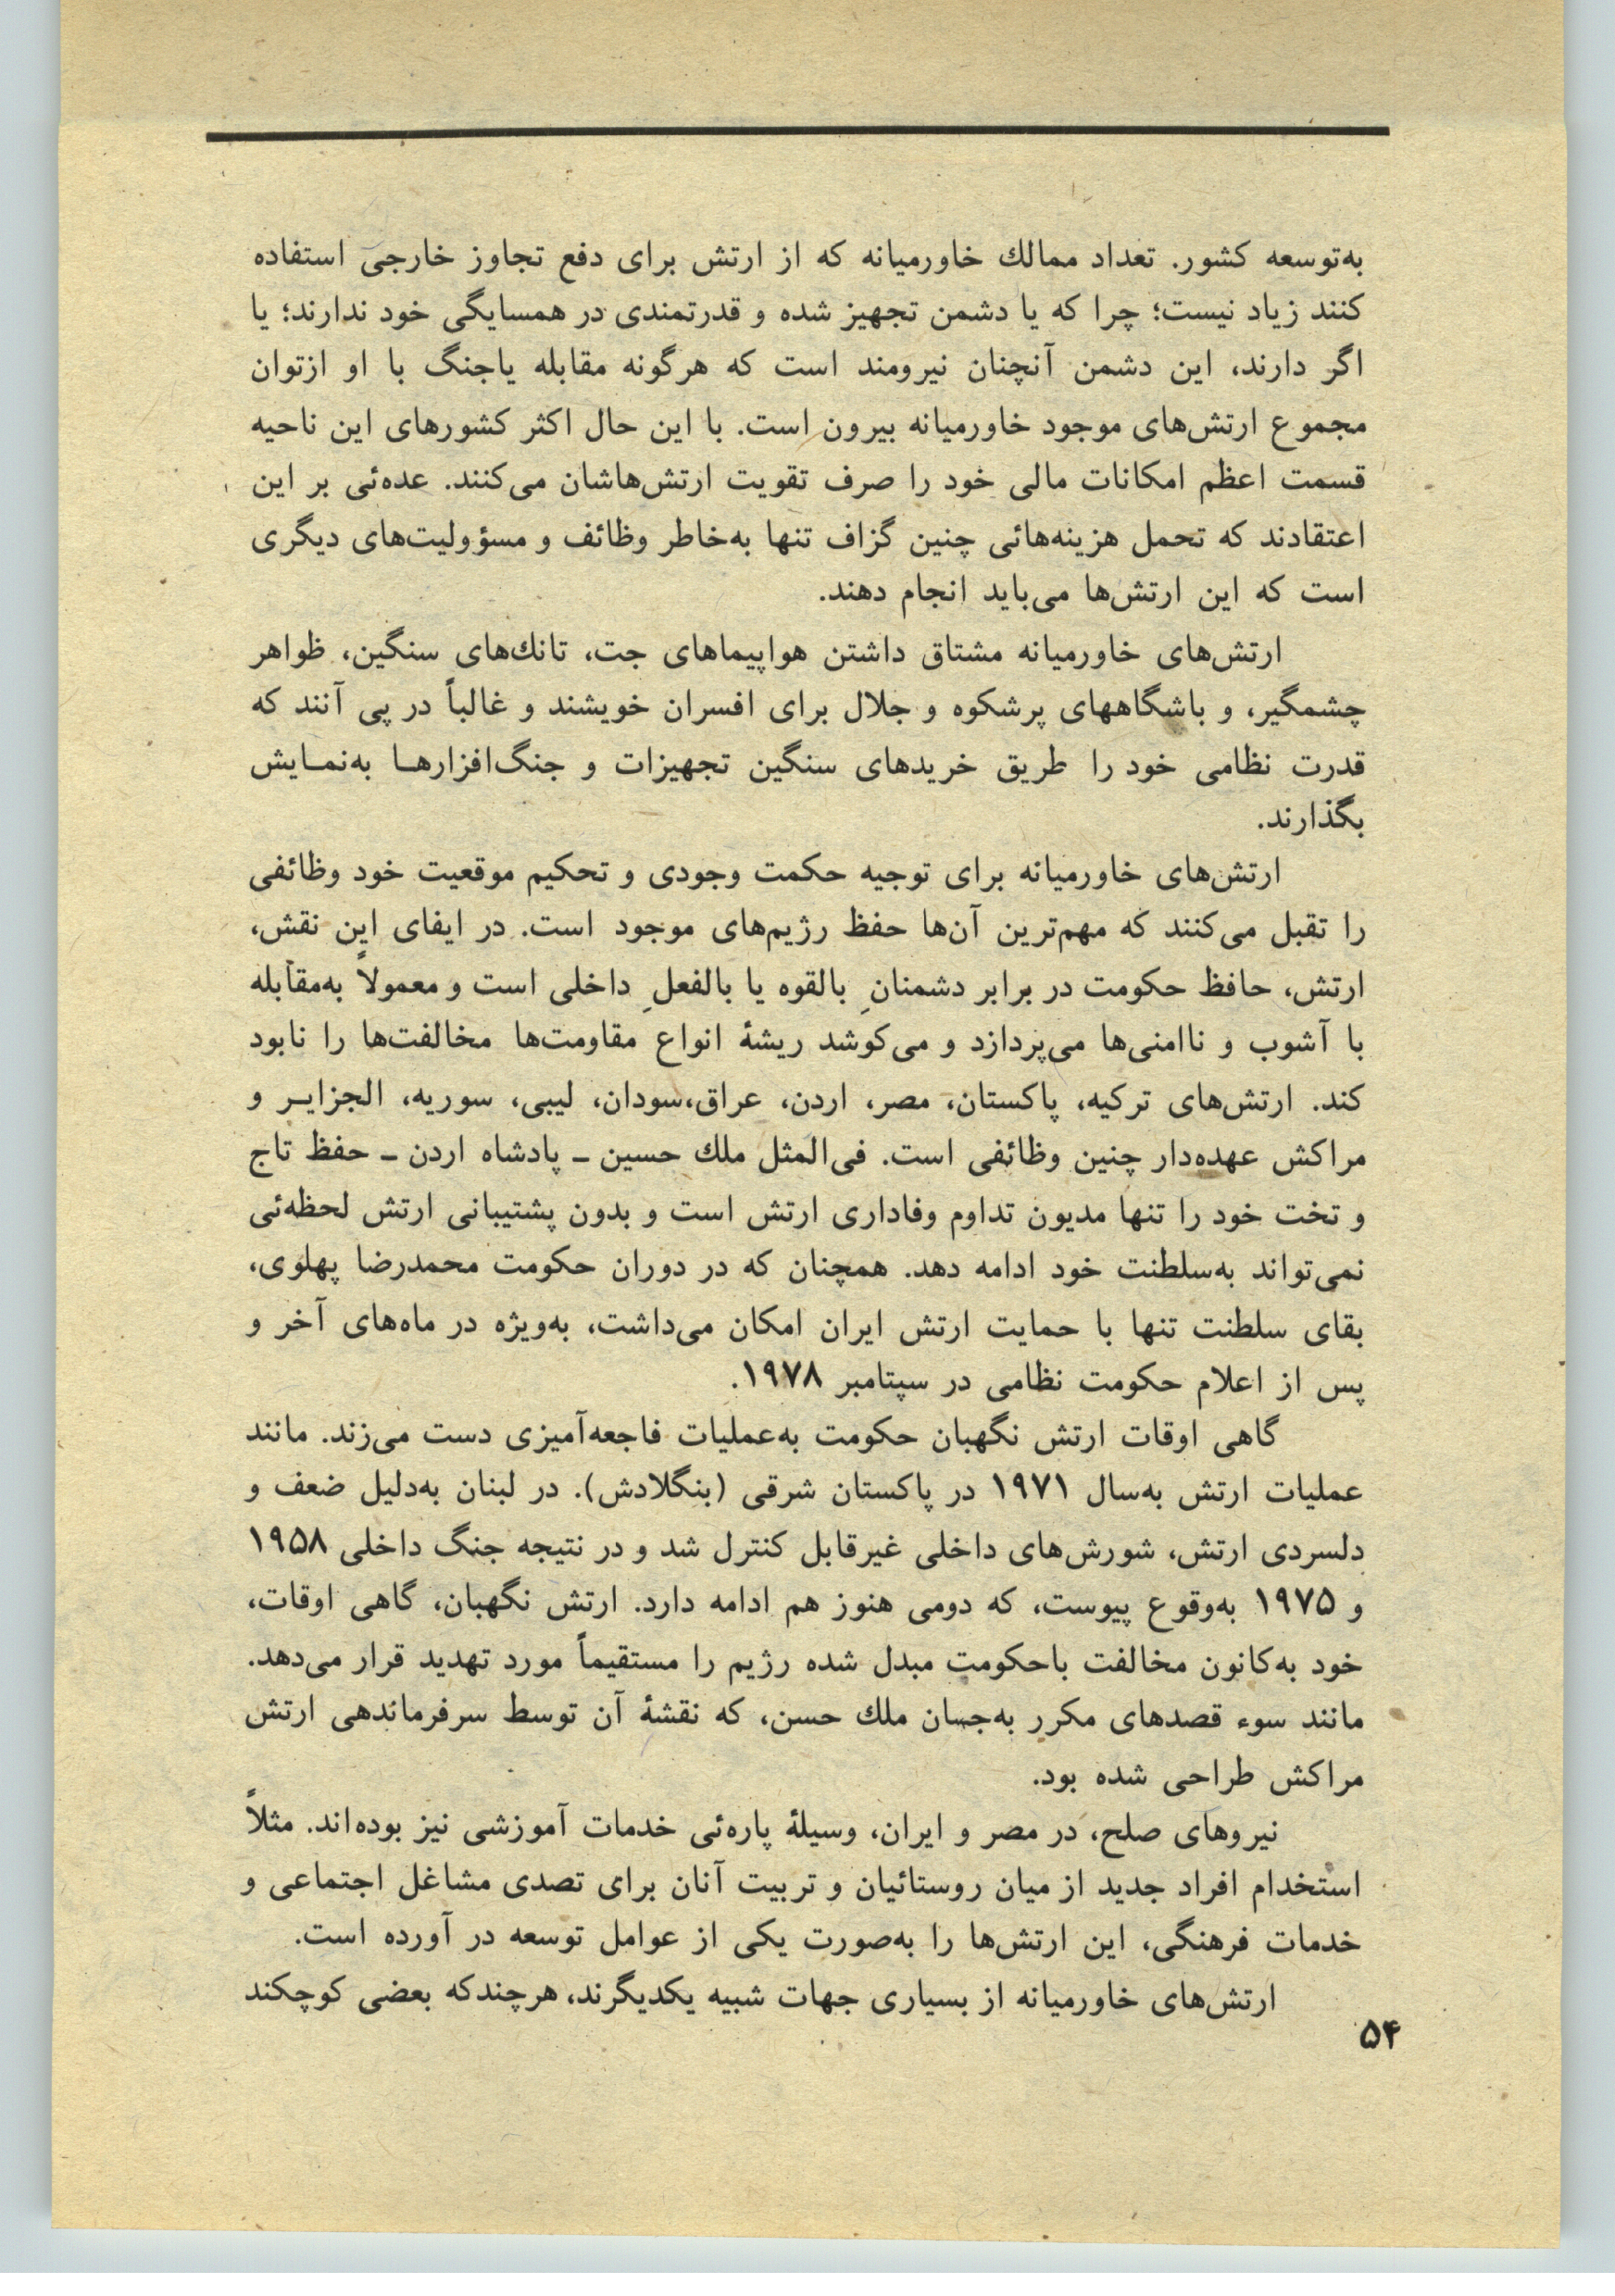 به‌توسعه کشور. تعداد ممالك خاورمیانه که از ارتش برای دفع تجاوز خارجی استفاده
کنند زیاد نیست؛ چرا که یا دشمن تجهیز شده و قدرتمندی در همسایگی خود ندارند؛ یا
اگر دارند، این دشمن آنچنان نیرومند است که هرگونه مقابله یاجنگ با او ازتوان
مجموع ارتش‌های موجود خاورمیانه بیرون است. با این حال اکثر کشورهای این ناحیه
قسمت اعظم امکانات مالی خود را صرف تقویت ارتش‌هاشان می‌کنند. عده‌ئی بر این
اعتقادند که تحمل هزینه‌هائی چنین گزاف تنها به‌خاطر وظائف و مسؤولیت‌های دیگری
است که این ارتش‌ها می‌باید انجام دهند.
ارتش‌های خاورمیانه مشتاق داشتن هواپیماهای جت، تانك‌های سنگین، ظواهر
چشمگیر، و باشگاههای پرشکوه و جلال برای افسران خویشند و غالباً در پی آنند که
قدرت نظامی خود را طریق خریدهای سنگین تجهیزات و جنگ‌افزارهـا به‌نمـایش
بگذارند.
ارتش‌های خاورمیانه برای توجیه حکمت وجودی و تحکیم موقعیت خود وظائفی
را تقبل می‌کنند که مهم‌ترین آن‌ها حفظ رژیم‌های موجود است. در ایفای این نقش،
ارتش، حافظ حکومت در برابر دشمنانِ بالقوه یا بالفعلِ داخلی است و معمولاً به‌مقابله
با آشوب و ناامنی‌ها می‌پردازد و می‌کوشد ریشهٔ انواع مقاومت‌ها مخالفت‌ها را نابود
کند. ارتش‌های ترکیه، پاکستان، مصر، اردن، عراق،سودان، لیبی، سوریه، الجزایـر و
مراکش عهده‌دار چنین وظائفی است. فی‌المثل ملك حسین ـ پادشاه اردن ـ حفظ تاج
و تخت خود را تنها مدیون تداوم وفاداری ارتش است و بدون پشتیبانی ارتش لحظه‌ئی
نمی‌تواند به‌سلطنت خود ادامه دهد. همچنان که در دوران حکومت محمدرضا پهلوی،
بقای سلطنت تنها با حمایت ارتش ایران امکان می‌داشت، به‌ویژه در ماه‌های آخر و
پس از اعلام حکومت نظامی در سپتامبر ۱۹۷۸.
گاهی اوقات ارتش نگهبان حکومت به‌عملیات فاجعه‌آمیزی دست می‌زند. مانند
عملیات ارتش به‌سال ۱۹۷۱ در پاکستان شرقی (بنگلادش). در لبنان به‌دلیل ضعف و
دلسردی ارتش، شورش‌های داخلی غیرقابل کنترل شد و در نتیجه جنگ داخلی ۱۹۵۸
و ۱۹۷۵ به‌وقوع پیوست، که دومی هنوز هم ادامه دارد. ارتش نگهبان، گاهی اوقات،
خود به‌کانون مخالفت باحکومت مبدل شده رژیم را مستقیماً مورد تهدید قرار می‌دهد.
مانند سوء قصدهای مکرر به‌جسان ملك حسن، که نقشهٔ آن توسط سرفرماندهی ارتش
مراکش طراحی شده بود.
نیروهای صلح، در مصر و ایران، وسیلهٔ پاره‌ئی خدمات آموزشی نیز بوده‌اند. مثلاً
استخدام افراد جدید از میان روستائیان و تربیت آنان برای تصدی مشاغل اجتماعی و
خدمات فرهنگی، این ارتش‌ها را به‌صورت یکی از عوامل توسعه در آورده است.
ارتش‌های خاورمیانه از بسیاری جهات شبیه یکدیگرند، هرچندکه بعضی کوچکند
۵۴